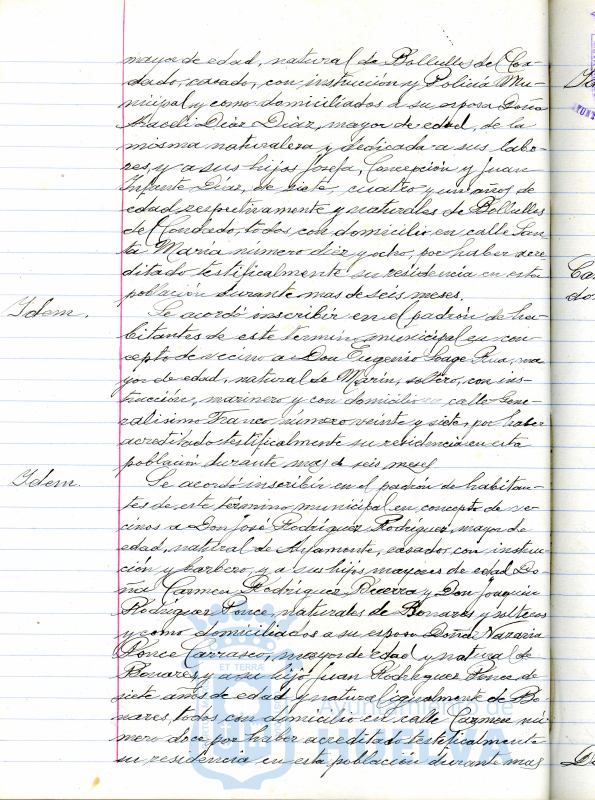 mayor de edad, natural de Bollullos del Con-
dado, casado, con instrucción y Policía Mu-
nicipal y como domiciliados a su esposa Doña
Araceli Díaz Díaz, mayor de edad, de la
misma naturaleza y dedicada a sus labo-
res, y a sus hijos Josefa, Concepción y Juan
Infante Díaz, de siete, cuatro y un años de
edad, respectivamente y naturales de Bollullos
del Condado, todos con domicilio en calle San-
ta María número diez y ocho, por haber acre-
ditado testificalmente su residencia en esta
población durante mas de seis meses.
Idem.
Se acordó inscribir en el padrón de ha-
bitantes de este término municipal en con-
cepto de vecino a Don Eugenio Soage Rua, ma-
yor de edad, natural de Marín, soltero, con ins-
trucción, marinero y con domicilio en calle Gene-
ralísimo Franco número veinte y siete, por haber
acreditado testificalmente su residencia en esta
población durante mas de seis meses
Idem.
Se acordó inscribir en el padrón de habitan-
tes de este término municipal en concepto de ve-
cinos a Don José Rodríguez Rodríguez, mayor de
edad, natural de Ayamonte, casado, con instruc-
ción y barbero, y a sus hijos mayores de edad Do-
ña Carmen Rodríguez Becerra y Don Joaquín
Rodríguez Ponce, naturales de Bonares y solteros
y como domiciliados a su esposa Doña Nazaria
Ponce Carrasco, mayor de edad y natural de
Bonares y a su hijo Juan Rodríguez Ponce de
siete años de edad y natural igualmente de Bo-
nares, todos con domicilio en calle Carmen nú-
mero doce por haber acreditado testificalmente
su residencia en esta población durante mas
ET TERRA
Ayuntamiento de
HUELVA